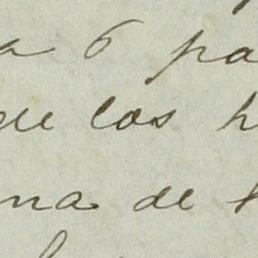 a 6 pa
de los h
na de